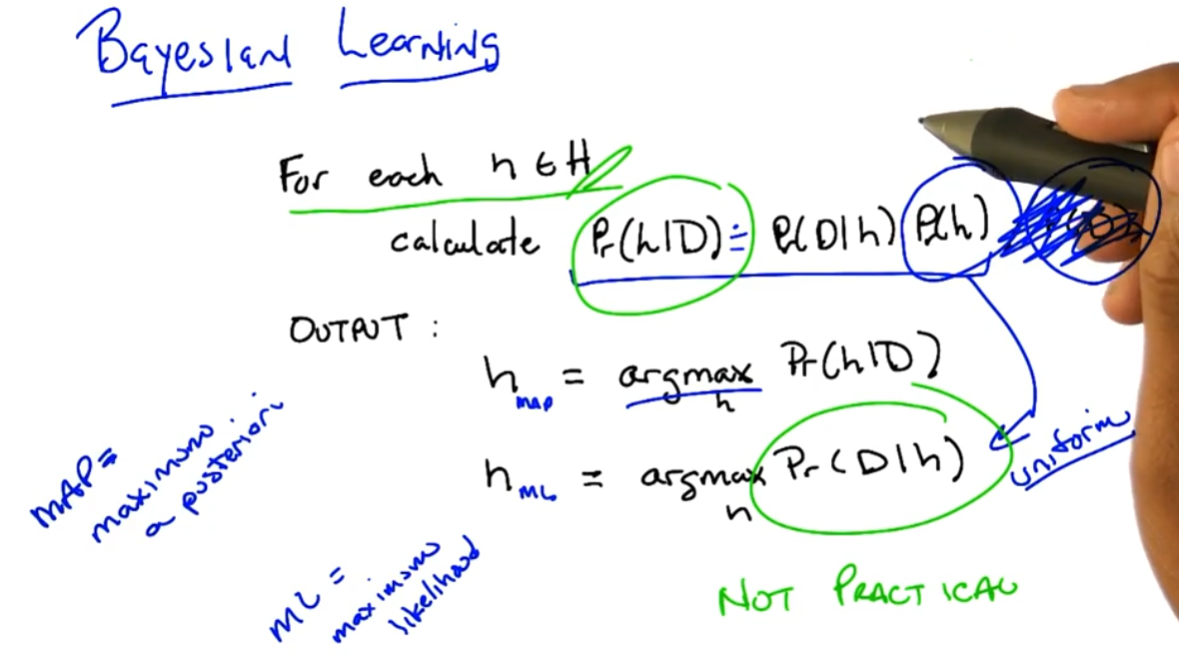 Bayesian Learning
For each h ∈ H
calculate Pr(h|D) ≐ Pr(D|h) Pr(h)
OUTPUT:
h_MAP = argmax_h Pr(h|D)
h_ML = argmax_h Pr(D|h)
uniform
MAP =
maximum
a posteriori
ML =
maximum
likelihood
NOT PRACTICAL